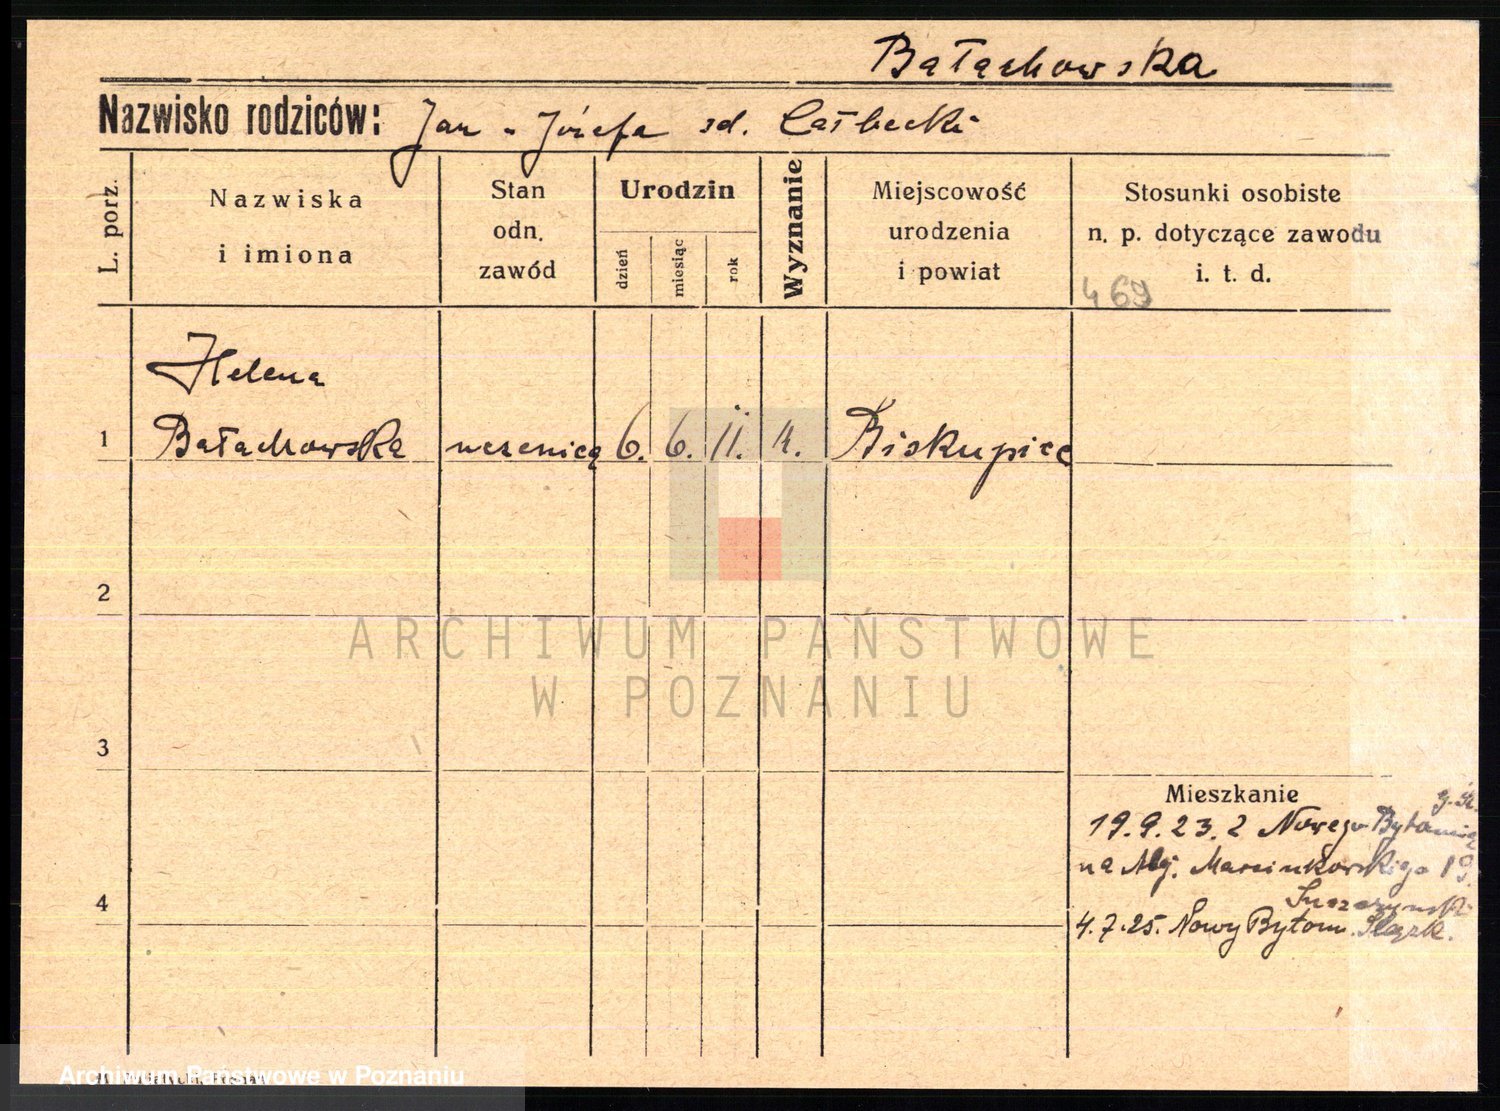 Bałachowska
Nazwisko rodziców: Jan - Józefa zd.
L. porz.
Nazwiska
i imiona
Stan
odn.
zawód
Urodzin
dzień
miesiąc
rok
Wyznanie
Miejscowość
urodzenia
i powiat
Stosunki osobiste
n. p. dotyczące zawodu
i. t. d.
469
Helena
1 Bałachowska uczenica 6. 6. 11. k. Biskupice
2
ARCHIWUM PAŃSTWOWE
W POZNANIU
3
Mieszkanie
g. Śl.
19.9.23. z Nowego Bytomia
na Alej. Marcinkowskiego 19.
4
4.7.25. Nowy Bytom. Śląsk.
Archiwum Państwowe w Poznaniu